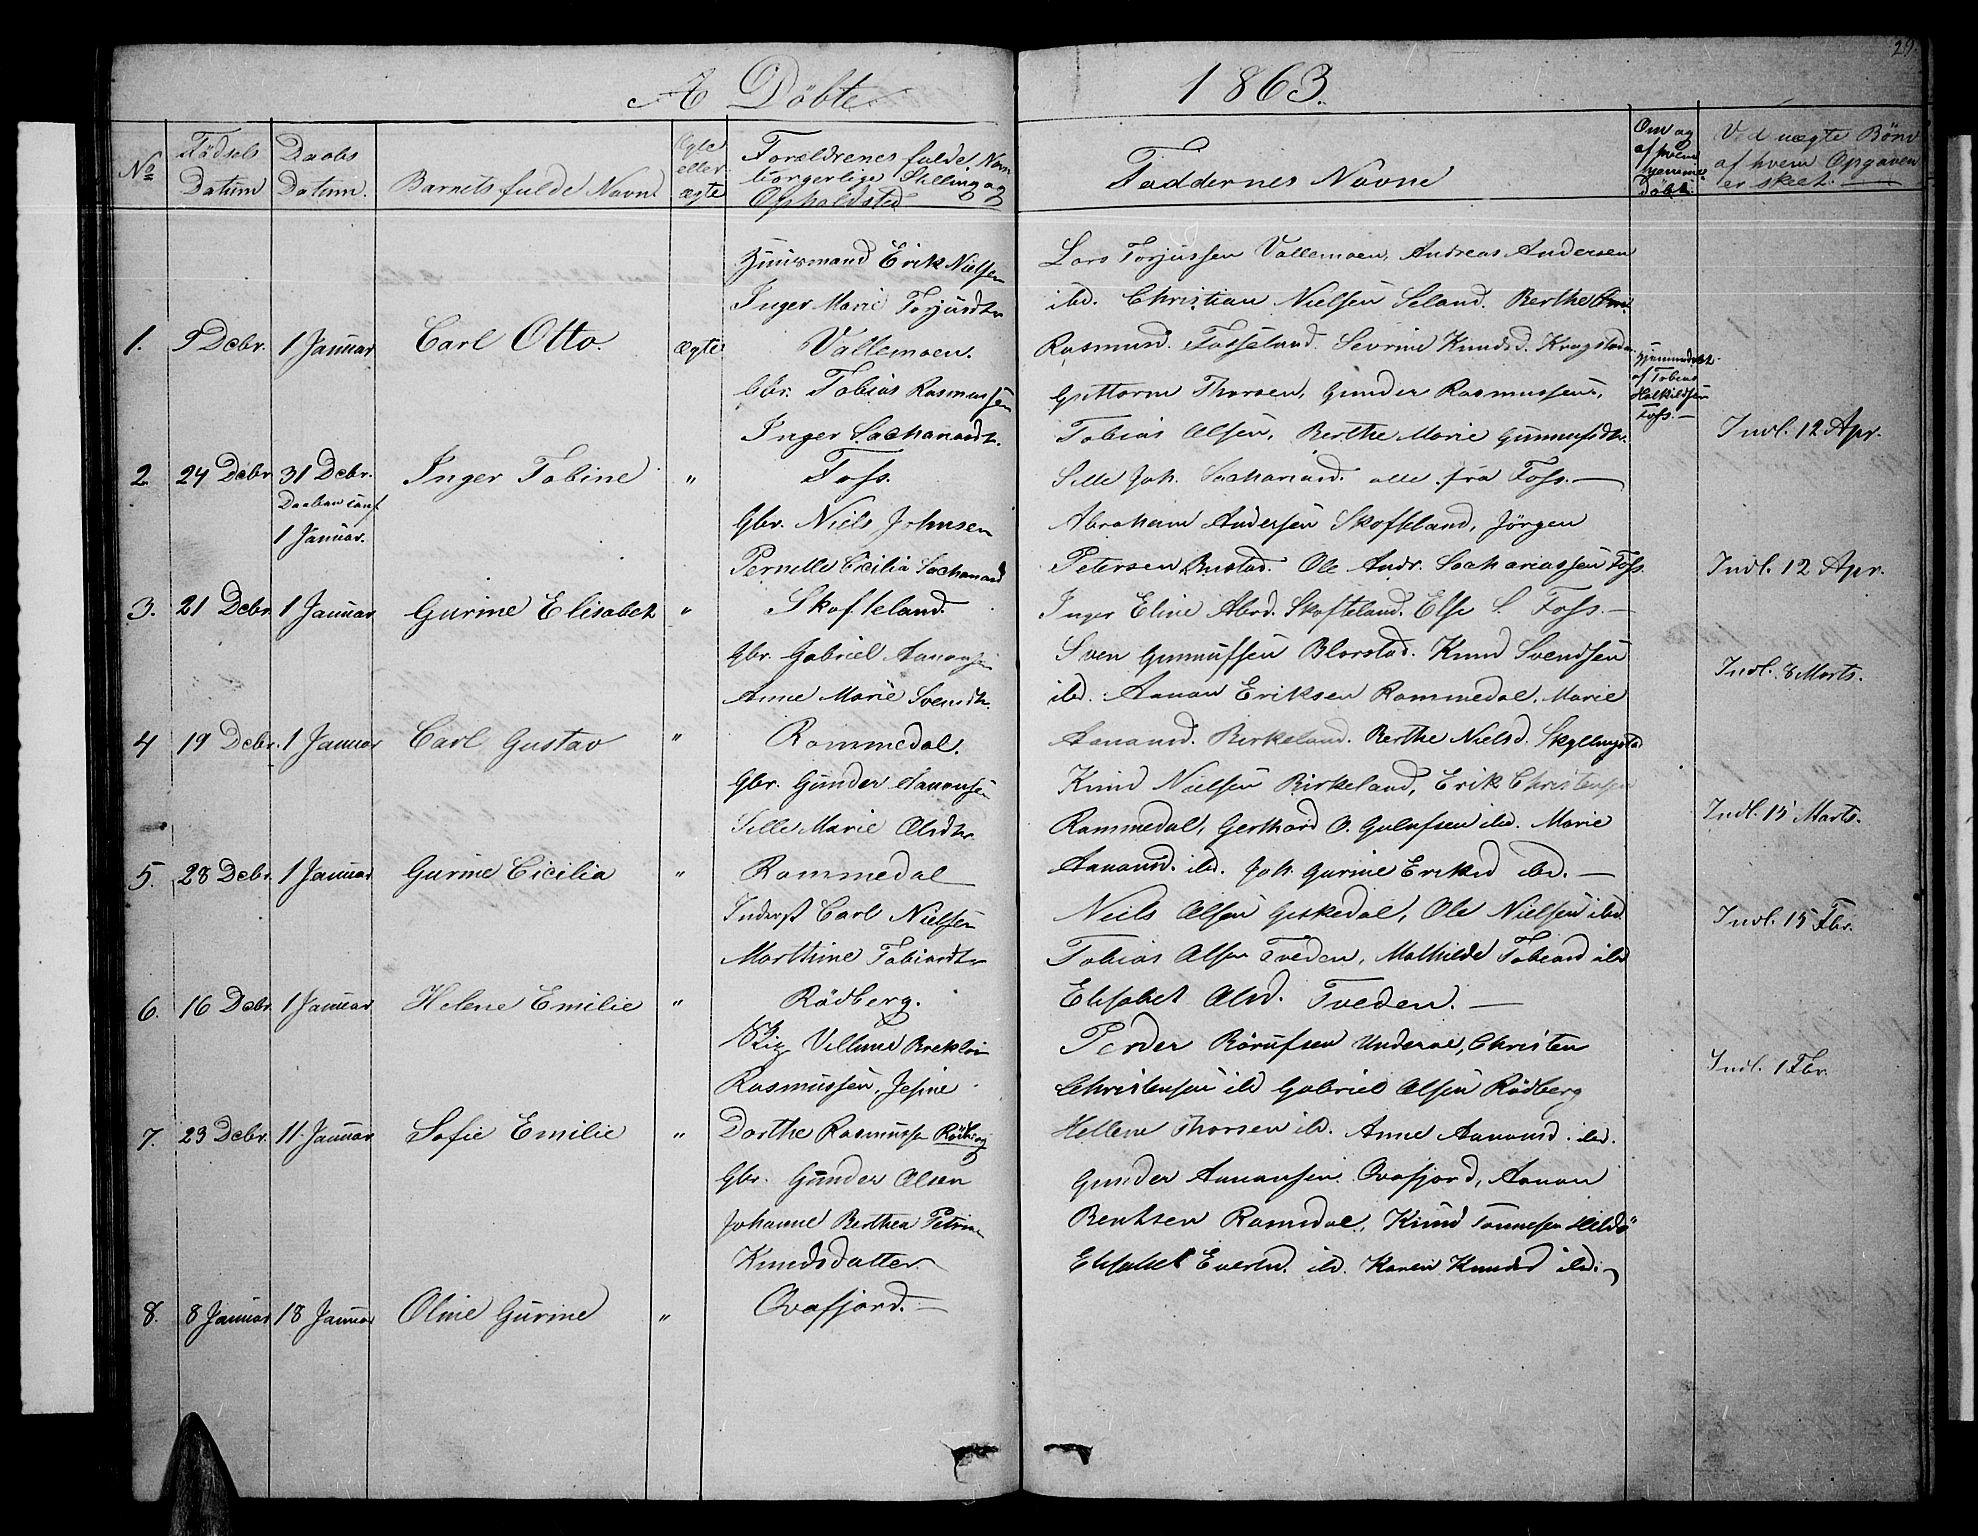 29.
A Döbte 1863.
No
Födsels Datum
Daabs Datum.
Barnets fulde Navn.
Ægte eller uægte
Forældrenes fulde Navn borgerlige Stilling og Opholdsted
Faddernes Navne
Om og af hvem hjemmedöbt.
Ved uægte Börn af hvem Opgaven er skeet.
Huusmand Erik Nielsen
Inger Marie Torjusdtr
1. 9 Debr. 1 Januar Carl Otto. ægte Vallemoen.
Lars Torjussen Vallemoen, Andreas Andersen
ibd. Christian Nielsen Seland. Berthe
Rasmusd. Fosseland. Sevrine Knudsd. Krogstad
Gbr. Tobias Rasmussen
Inger Sachariasdtr.
2 24 Debr 31 Debr. Inger Tobine " Foss.
Daaben conf
1 Januar.
Guttorm Thorsen, Gunder Rasmussen,
Tobias Olsen, Berthe Marie Gunnufsdtr.
Sille Joh. Sachariasd. alle fra Foss.
hjemmedöbt af Tobias Halkildsen Foss.
Indl. 12 Apr.
Gbr. Niels Johnsen
Pernille Cicilia Sachariasd
3. 21 Debr. 1 Januar Gurine Elisabet " Skofteland.
Abraham Andersen Skofteland, Jörgen
Petersen Bustad. Ole Andr. Sachariassen Foss.
Inger Eline Abrd. Skofteland. Else S. Foss.
Indl. 12 Apr.
Gbr. Gabriel Aanonsen
Anne Marie Svendtr.
4 19 Debr. 1 Januar Carl Gustav " Rommedal.
Sven Gunnufsen Blorstad. Knud Svendsen
ibd. Aanon Eriksen Rommedal. Marie
Aanansd. Birkeland. Berthe Nielsd. Skyllingstad
Indl. 8 Marts.
Gbr. Gunder Aanonsen
Sille Marie Olsdtr.
5. 28 Debr. 1 Januar Gurine Cicilia " Rommedal
Knud Nielsen Birkeland, Erik Christensen
Rommedal, Gerthard O. Gulufsen ibd. Marie
Aanonsd. ibd. Joh. Gurine Eriksd ibd.
Indl. 15 Marts.
Inderst Carl Nielsen
Marthine Tobiasdtr
6. 16 Debr. 1 Januar Helene Emilie " Rödberg.
Niels Olsen Giskedal, Ole Nielsen ibd
Tobias Olsen Tveden, Mathilde Tobiasd ibd
Elisabet Olsd. Tveden.
Indl. 15 Fbr.
Villum
Rasmussen, Jesine
7. 23 Debr. 11 Januar Sofie Emilie " Dorthe Rasmussen Rödberg
Peder Rörufsen Underøe, Christen
Christensen ibd Gabriel Olsen Rödberg
Hellem Thorsen ibd. Anne Aanonsd. ibd.
Indl. 1 Fbr.
Gbr. Gunder Olsen
Johanne Berthea Petrine
Knudsdatter
8. 8 Januar 18 Januar Oline Gurine " Ovafjord.
Gunder Aanansen. Ovafjord, Aanon
Bentsen Romsdal, Knud Tönnesen Hildö
Elisabet Evertsd. ibd. Karen Knudsd ibd.